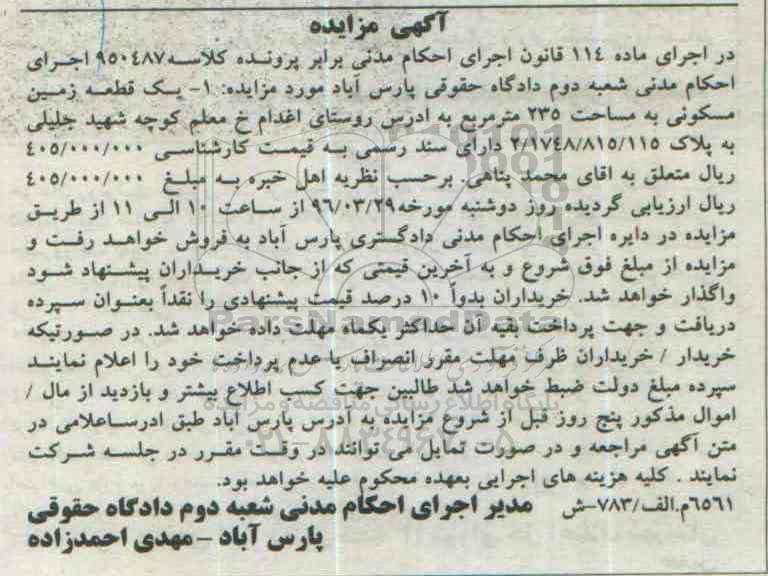 آگهی مزایده
در اجرای ماده ۱۱۴ قانون اجرای احکام مدنی برابر پرونده کلاسه ۹۵۰۴۸۷ اجرای
احکام مدنی شعبه دوم دادگاه حقوقی پارس آباد مورد مزایده: ۱- یک قطعه زمین
مسکونی به مساحت ۲۳۵ مترمربع به ادرس روستای اغدام خ معلم کوچه شهید جلیلی
به پلاک ۲/۱۷۴۸/۸۱۵/۱۱۵ دارای سند رسمی به قیمت کارشناسی ۴۰۵/۰۰۰/۰۰۰
ریال متعلق به اقای محمد پناهی. برحسب نظریه اهل خبره به مبلغ ۴۰۵/۰۰۰/۰۰۰
ریال ارزیابی گردیده روز دوشنبه مورخه ۹۶/۰۳/۲۹ از ساعت ۱۰ الی ۱۱ از طریق
مزایده در دایره اجرای احکام مدنی دادگستری پارس آباد به فروش خواهد رفت و
مزایده از مبلغ فوق شروع و به آخرین قیمتی که از جانب خریداران پیشنهاد شود
واگذار خواهد شد. خریداران بدواً ۱۰ درصد قیمت پیشنهادی را نقداً بعنوان سپرده
دریافت و جهت پرداخت بقیه آن حداکثر یکماه مهلت داده خواهد شد. در صورتیکه
خریدار / خریداران ظرف مهلت مقرر انصراف یا عدم پرداخت خود را اعلام نمایند
سپرده مبلغ دولت ضبط خواهد شد طالبین جهت کسب اطلاع بیشتر و بازدید از مال /
اموال مذکور پنج روز قبل از شروع مزایده به ادرس پارس آباد طبق ادرساعلامی در
متن آگهی مراجعه و در صورت تمایل می توانند در وقت مقرر در جلسه شرکت
نمایند . کلیه هزینه های اجرایی بعهده محکوم علیه خواهد بود.
۶۵۶۱م.الف/۷۸۳-ش مدیر اجرای احکام مدنی شعبه دوم دادگاه حقوقی
پارس آباد -مهدی احمدزاده
ParsNamadData
پایگاه اطلاع رسانی مناقصه و مزایده